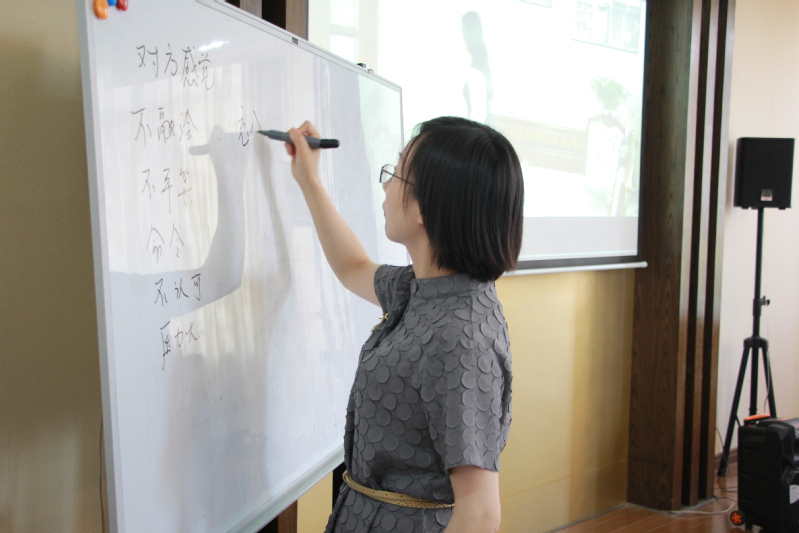 对方感觉
不融洽
不平等
命令
不认可
压力大